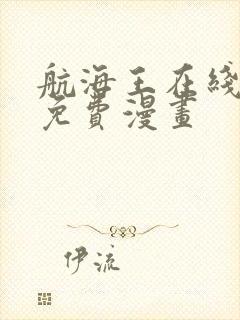 航海王在綫
免費漫畫
伊流